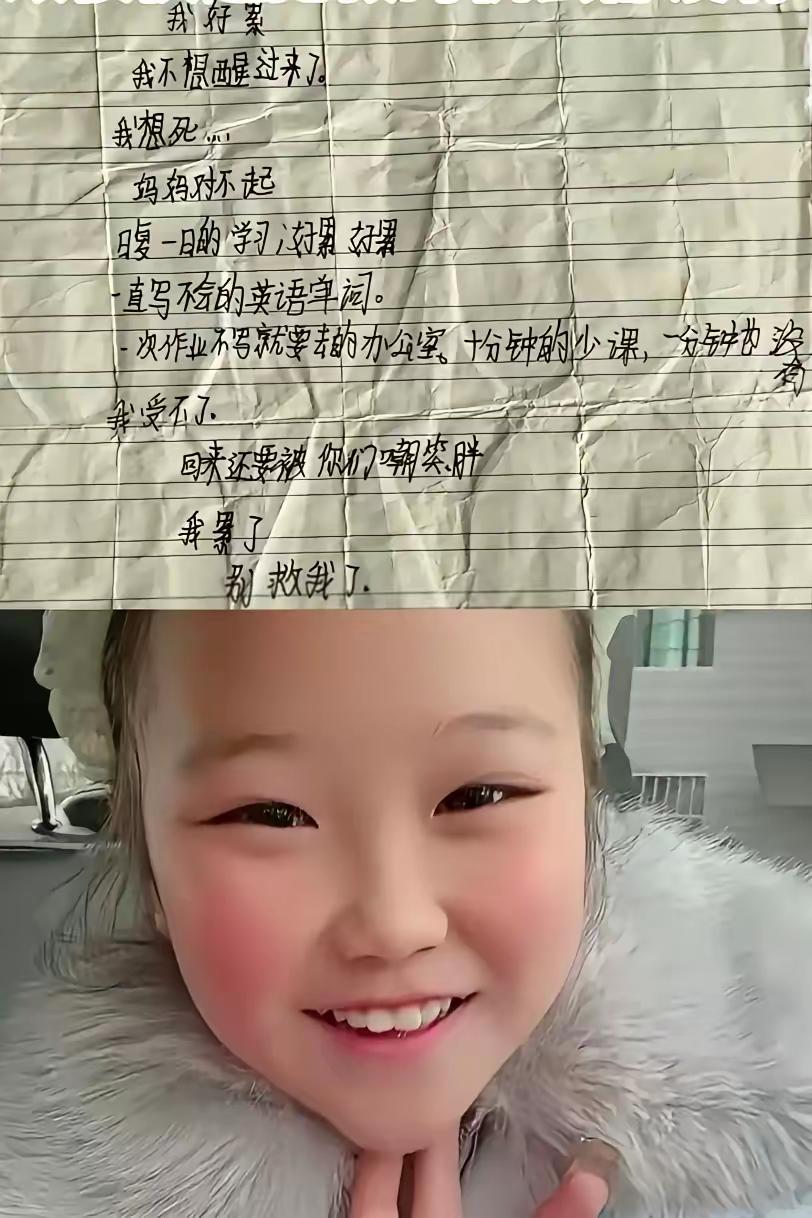 我好累
我不想醒过来了。
我想死....
妈妈对不起
日复一日的学习,好累 好累
一直写不会的英语单词。
一次作业不写就要去的办公室。十分钟的少课,一分钟也没有
我受不了.
回来还要被你们嘲笑胖
我累了
别救我了.